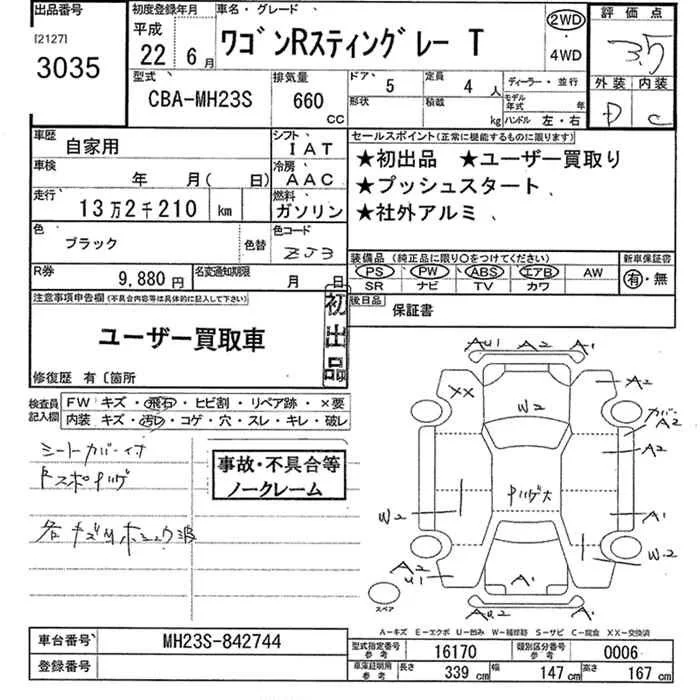 出品番号
[2127]
3035
初度登録年月
平成
22 6月
車名・グレード
ワゴンRスティングレー T
2WD
・
4WD
評価点
3.5
外装 内装
D C
型式
CBA-MH23S
排気量
660
cc
ドア 5
形状
定員 4 人
積載 kg
ディーラー・並行
モデル年式 年
ハンドル 左・右
車歴 自家用
シフト IAT
車検 年 月( 日)
冷房 AAC
走行 13万2千210 km
燃料 ガソリン
色 ブラック
色替
色コード ZJ3
R券 9,880円
名変通知期限 月 日
セールスポイント(正常に機能するものに限ります)
★初出品 ★ユーザー買取り
★プッシュスタート
★社外アルミ
装備品(純正品に限り○をつけてください)
PS PW ABS エアB AW
SR ナビ TV カワ
新車保証書
有・無
後日品
保証書
注意事項申告欄(不具合内容等は具体的に記入して下さい)
ユーザー買取車
初出品
修復歴 有〔箇所
検査員記入欄
FW キズ・飛石・ヒビ割・リペア跡・×要
内装 キズ・汚レ・コゲ・穴・スレ・キレ・破レ
シートカバー付
各キズ
事故・不具合等
ノークレーム
AU1 A2 A1
XX
A2
W2
カバーA2
A2
W2
A1
W2
A2
U1
A1
AU2
A1
スペア
A-キズ E-エクボ U-凹み W-補修跡 S-サビ C-腐食 XX-交換済
車台番号 MH23S-842744
登録番号
型式指定番号 参考 16170
類別区分番号 参考 0006
車庫証明用 参考
長さ 339 cm
幅 147 cm
高さ 167 cm